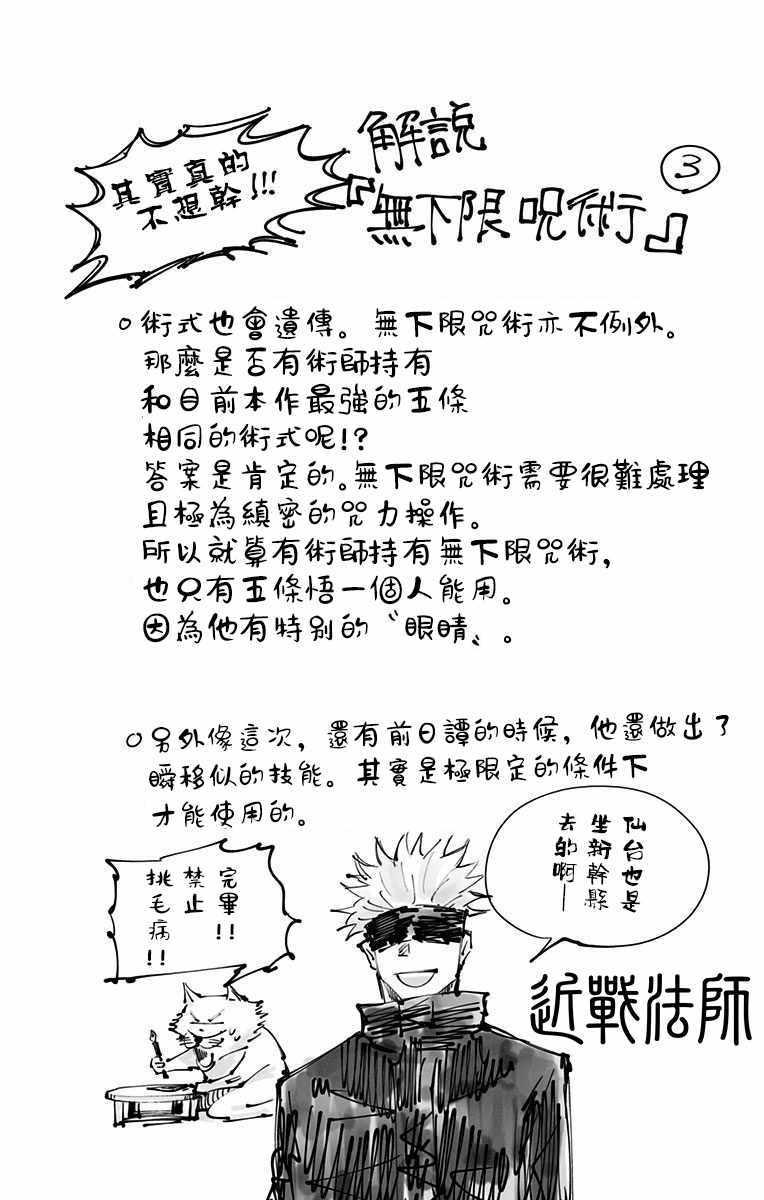 其實真的
不想幹!!!
解說
『無下限呪術』
③
○術式也會遺傳。無下限咒術亦不例外。
那麼是否有術師持有
和目前本作最強的五條
相同的術式呢!?
答案是肯定的。無下限咒術需要很難處理
且極為縝密的咒力操作。
所以就算有術師持有無下限咒術,
也只有五條悟一個人能用。
因為他有特別的〝眼睛〟。
○另外像這次,還有前日譚的時候,他還做出了
瞬移似的技能。其實是極限定的條件下
才能使用的。
仙台也是
坐新幹縣
去的啊—
完畢!!
禁止
挑毛病!!
近戰法師